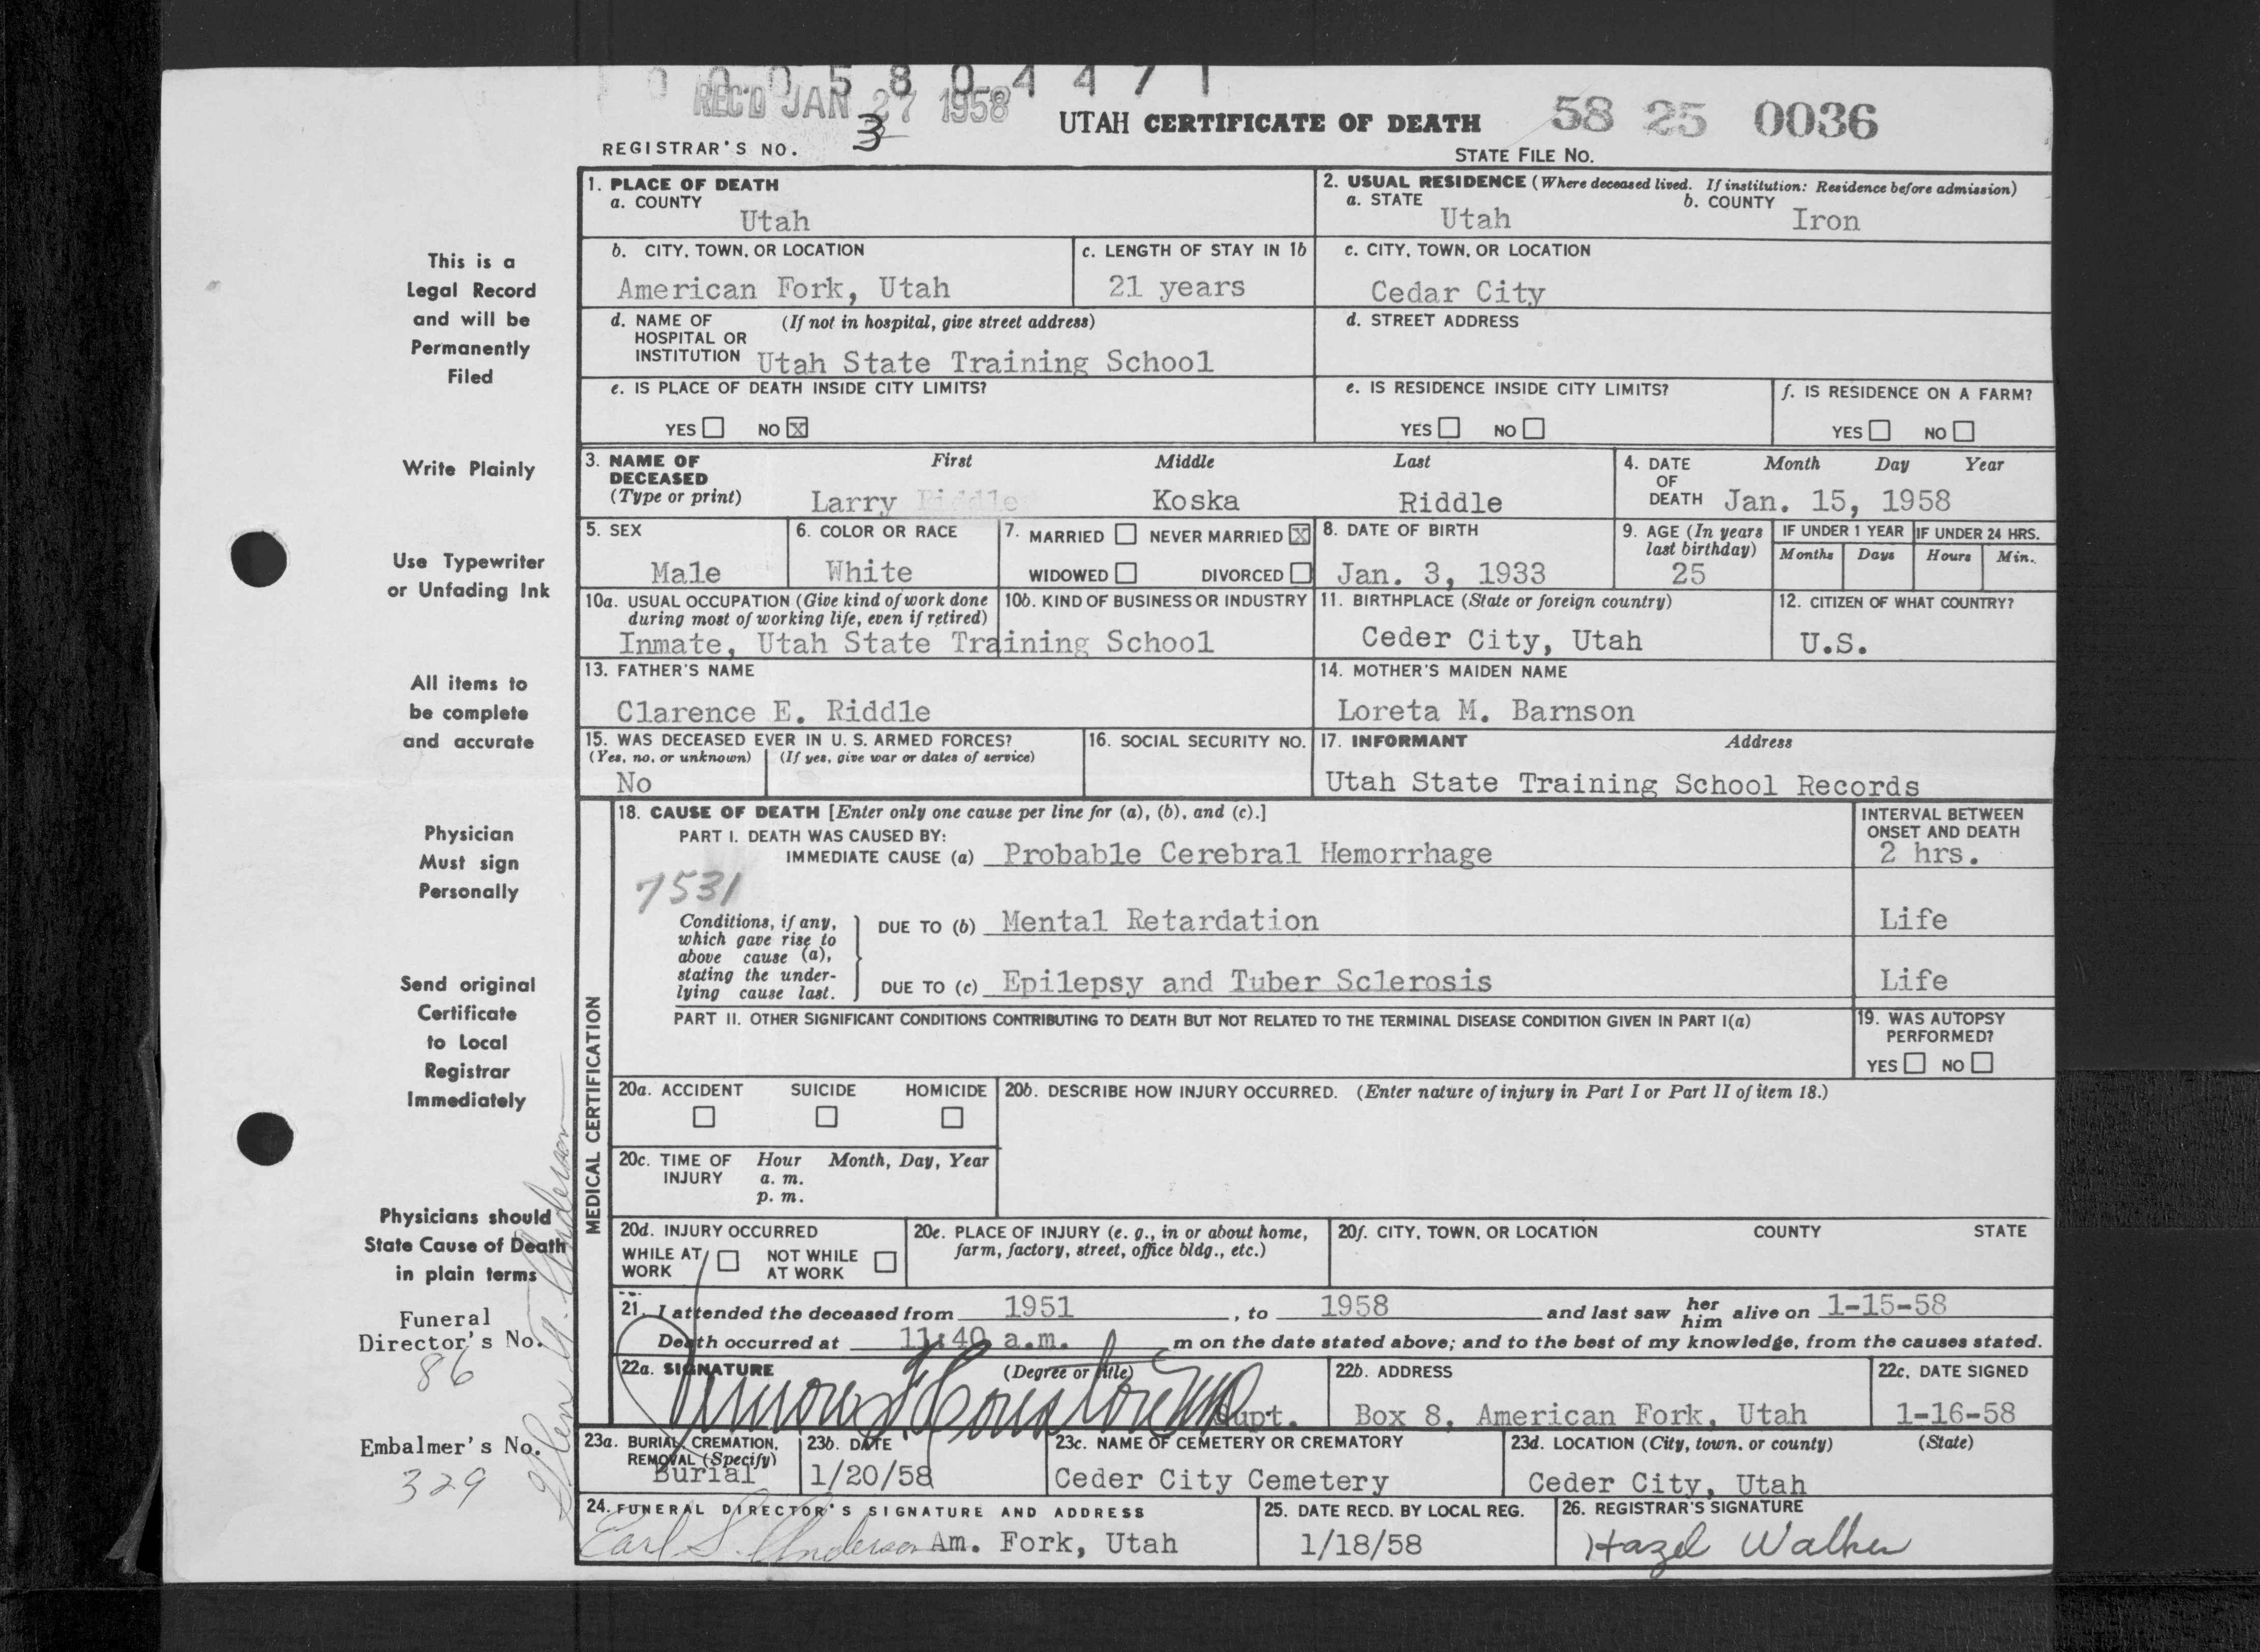 0 0 0 5 8 0 4 4 7 1
REC'D JAN 27 1958
UTAH CERTIFICATE OF DEATH
58 25 0036
REGISTRAR'S NO. 3
STATE FILE NO.
This is a
Legal Record
and will be
Permanently
Filed
Write Plainly
Use Typewriter
or Unfading Ink
All items to
be complete
and accurate
Physician
Must sign
Personally
Send original
Certificate
to Local
Registrar
Immediately
Physicians should
State Cause of Death
in plain terms
Funeral
Director's No.
86
Embalmer's No.
329
Glen G. Anderson
1. PLACE OF DEATH
a. COUNTY
Utah
2. USUAL RESIDENCE (Where deceased lived. If institution: Residence before admission)
a. STATE
Utah
b. COUNTY
Iron
b. CITY, TOWN, OR LOCATION
American Fork, Utah
c. LENGTH OF STAY IN 1b
21 years
c. CITY, TOWN, OR LOCATION
Cedar City
d. NAME OF (If not in hospital, give street address)
HOSPITAL OR
INSTITUTION Utah State Training School
d. STREET ADDRESS
e. IS PLACE OF DEATH INSIDE CITY LIMITS?
YES NO X
e. IS RESIDENCE INSIDE CITY LIMITS?
YES NO
f. IS RESIDENCE ON A FARM?
YES NO
3. NAME OF DECEASED (Type or print)
First Middle Last
Larry Riddle Koska Riddle
4. DATE OF DEATH
Month Day Year
Jan. 15, 1958
5. SEX
Male
6. COLOR OR RACE
White
7. MARRIED NEVER MARRIED X
WIDOWED DIVORCED
8. DATE OF BIRTH
Jan. 3, 1933
9. AGE (In years
last birthday)
25
IF UNDER 1 YEAR
Months Days
IF UNDER 24 HRS.
Hours Min.
10a. USUAL OCCUPATION (Give kind of work done
during most of working life, even if retired)
10b. KIND OF BUSINESS OR INDUSTRY
Inmate, Utah State Training School
11. BIRTHPLACE (State or foreign country)
Ceder City, Utah
12. CITIZEN OF WHAT COUNTRY?
U.S.
13. FATHER'S NAME
Clarence E. Riddle
14. MOTHER'S MAIDEN NAME
Loreta M. Barnson
15. WAS DECEASED EVER IN U. S. ARMED FORCES?
(Yes, no, or unknown) (If yes, give war or dates of service)
No
16. SOCIAL SECURITY NO.
17. INFORMANT Address
Utah State Training School Records
MEDICAL CERTIFICATION
18. CAUSE OF DEATH [Enter only one cause per line for (a), (b), and (c).]
PART I. DEATH WAS CAUSED BY:
IMMEDIATE CAUSE (a) Probable Cerebral Hemorrhage
INTERVAL BETWEEN
ONSET AND DEATH
2 hrs.
7531
Conditions, if any,
which gave rise to
above cause (a),
stating the under-
lying cause last.
DUE TO (b) Mental Retardation
Life
DUE TO (c) Epilepsy and Tuber Sclerosis
Life
PART II. OTHER SIGNIFICANT CONDITIONS CONTRIBUTING TO DEATH BUT NOT RELATED TO THE TERMINAL DISEASE CONDITION GIVEN IN PART I(a)
19. WAS AUTOPSY
PERFORMED?
YES NO
20a. ACCIDENT SUICIDE HOMICIDE
20b. DESCRIBE HOW INJURY OCCURRED. (Enter nature of injury in Part I or Part II of item 18.)
20c. TIME OF INJURY
Hour Month, Day, Year
a. m.
p. m.
20d. INJURY OCCURRED
WHILE AT WORK
NOT WHILE AT WORK
20e. PLACE OF INJURY (e. g., in or about home,
farm, factory, street, office bldg., etc.)
20f. CITY, TOWN, OR LOCATION COUNTY STATE
21. I attended the deceased from 1951, to 1958 and last saw her him alive on 1-15-58
Death occurred at 11:40 a.m. m on the date stated above; and to the best of my knowledge, from the causes stated.
22a. SIGNATURE (Degree or title)
Supt.
22b. ADDRESS
Box 8, American Fork, Utah
22c. DATE SIGNED
1-16-58
23a. BURIAL, CREMATION,
REMOVAL (Specify)
Burial
23b. DATE
1/20/58
23c. NAME OF CEMETERY OR CREMATORY
Ceder City Cemetery
23d. LOCATION (City, town, or county) (State)
Ceder City, Utah
24. FUNERAL DIRECTOR'S SIGNATURE AND ADDRESS
Earl S. Anderson Am. Fork, Utah
25. DATE RECD. BY LOCAL REG.
1/18/58
26. REGISTRAR'S SIGNATURE
Hazel Walker